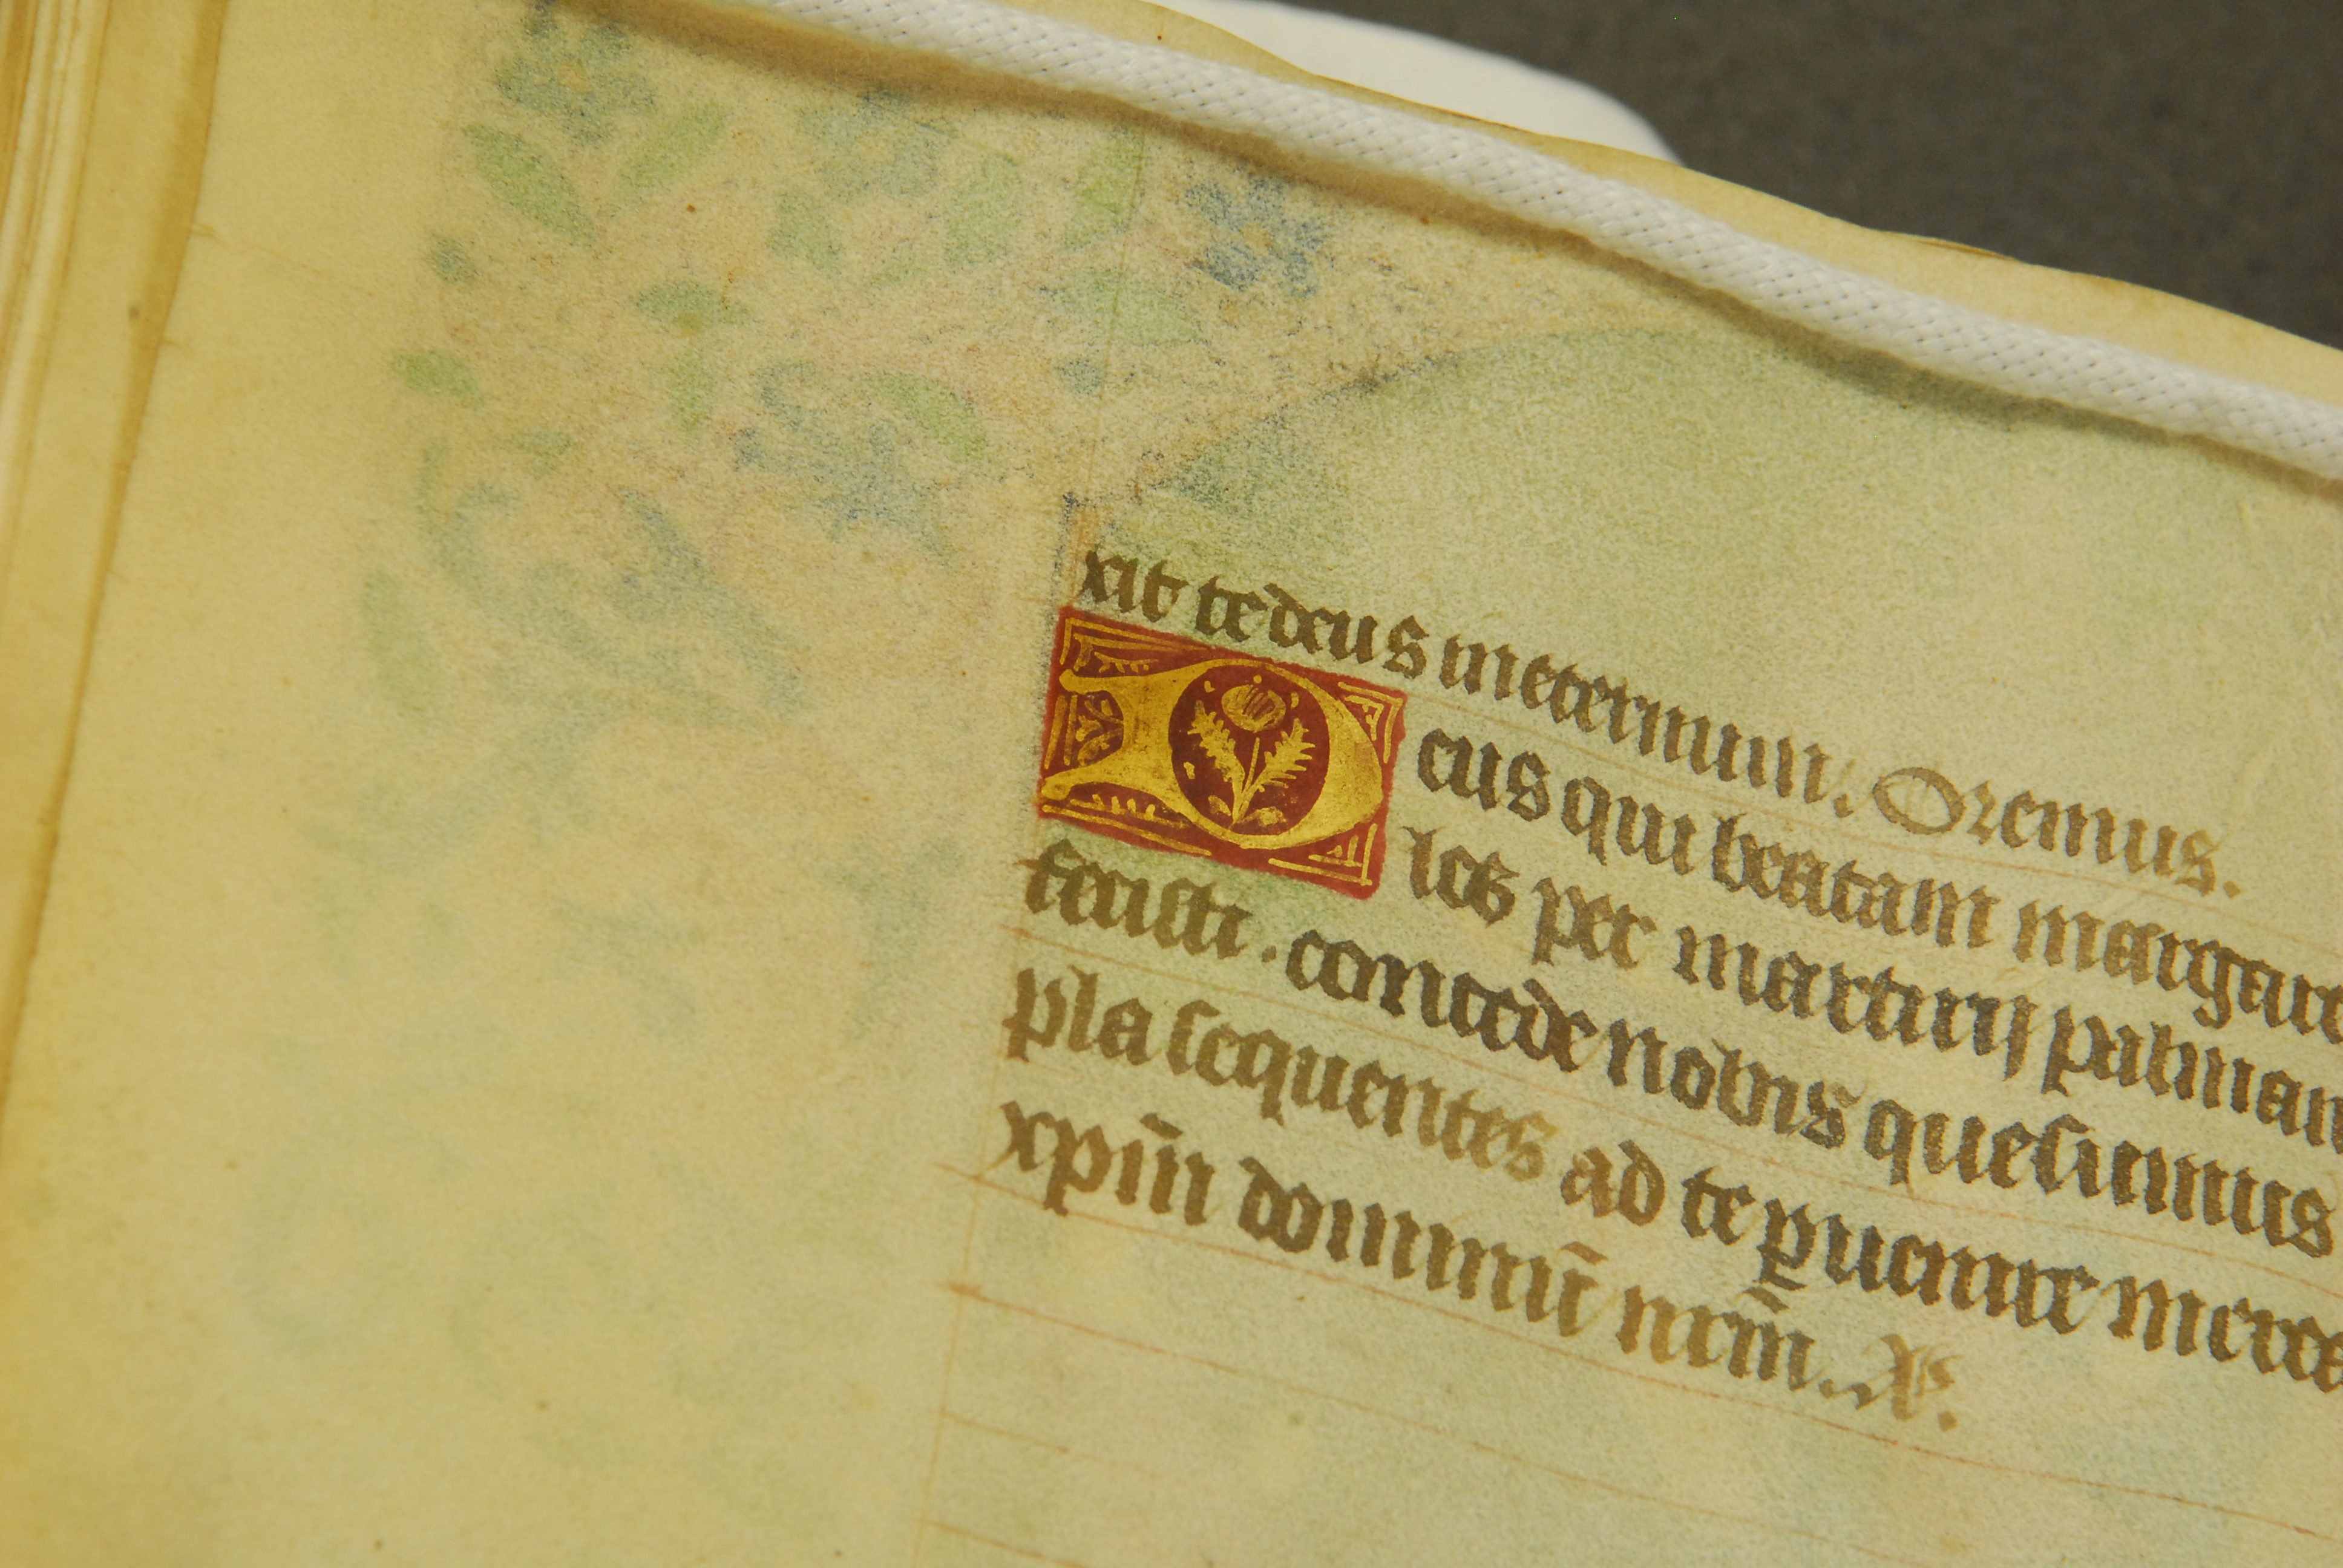 xit te deus in eternum. Oremus.
Deus qui beatam margare
los per martirij palman
fecisti. concede nobis quesumus
pla sequentes ad te ꝑuenire merea
xpm̄ dominū nr̄m.